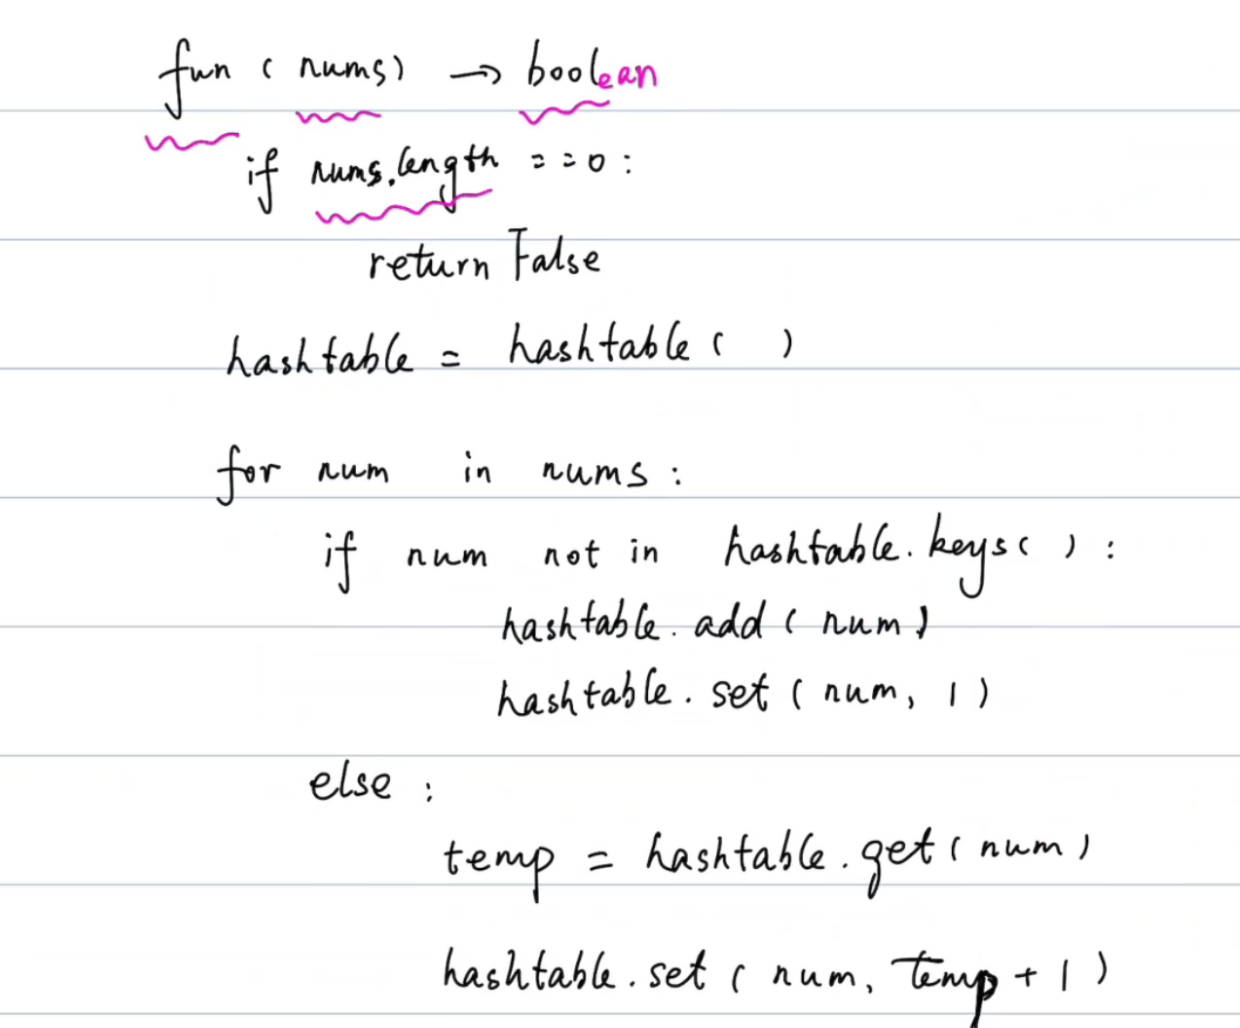 fun ( nums ) → boolean
if nums.length == 0 :
return False
hashtable = hashtable ( )
for num in nums :
if num not in hashtable. keys ( ) :
hashtable. add ( num )
hashtable. set ( num, 1 )
else :
temp = hashtable. get ( num )
hashtable. set ( num, temp + 1 )